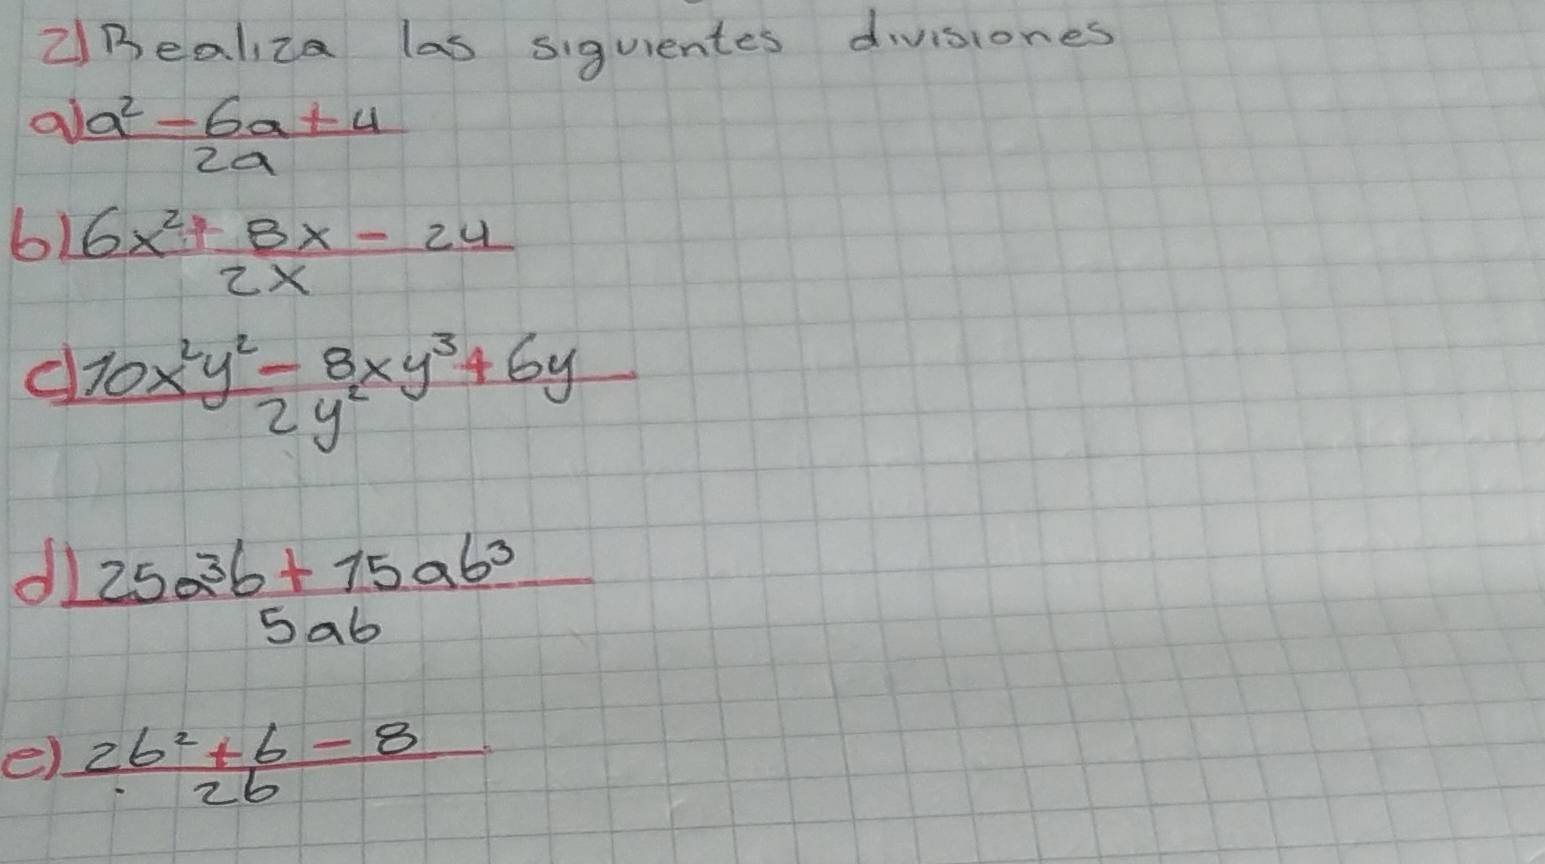 2) Realiza las siguientes divisiones
a) a² - 6a + 4
2a
b) 6x² + 8x - 24
2x
c) 10x²y² - 8xy³ + 6y
2y²
d) 25a³b + 15ab³
5ab
e) 2b² + b - 8
2b